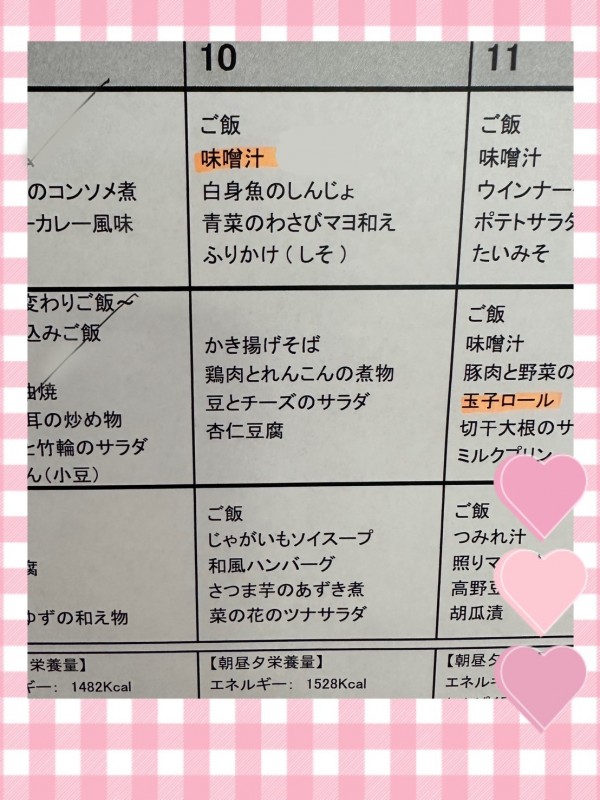 10
11
のコンソメ煮
カレー風味
変わりご飯～
込みご飯
耳の炒め物
と竹輪のサラダ
ん(小豆)
ゆずの和え物
栄養量】
ギー: 1482Kcal
ご飯
味噌汁
白身魚のしんじょ
青菜のわさびマヨ和え
ふりかけ(しそ)
かき揚げそば
鶏肉とれんこんの煮物
豆とチーズのサラダ
杏仁豆腐
ご飯
じゃがいもソイスープ
和風ハンバーグ
さつま芋のあずき煮
菜の花のツナサラダ
【朝昼夕栄養量】
エネルギー: 1528Kcal
ご飯
味噌汁
ウインナー
ポテトサラダ
たいみそ
ご飯
味噌汁
豚肉と野菜の
玉子ロール
切干大根のサ
ミルクプリン
ご飯
つみれ汁
照りマ
高野豆
胡瓜漬
【朝昼夕
エネルギ